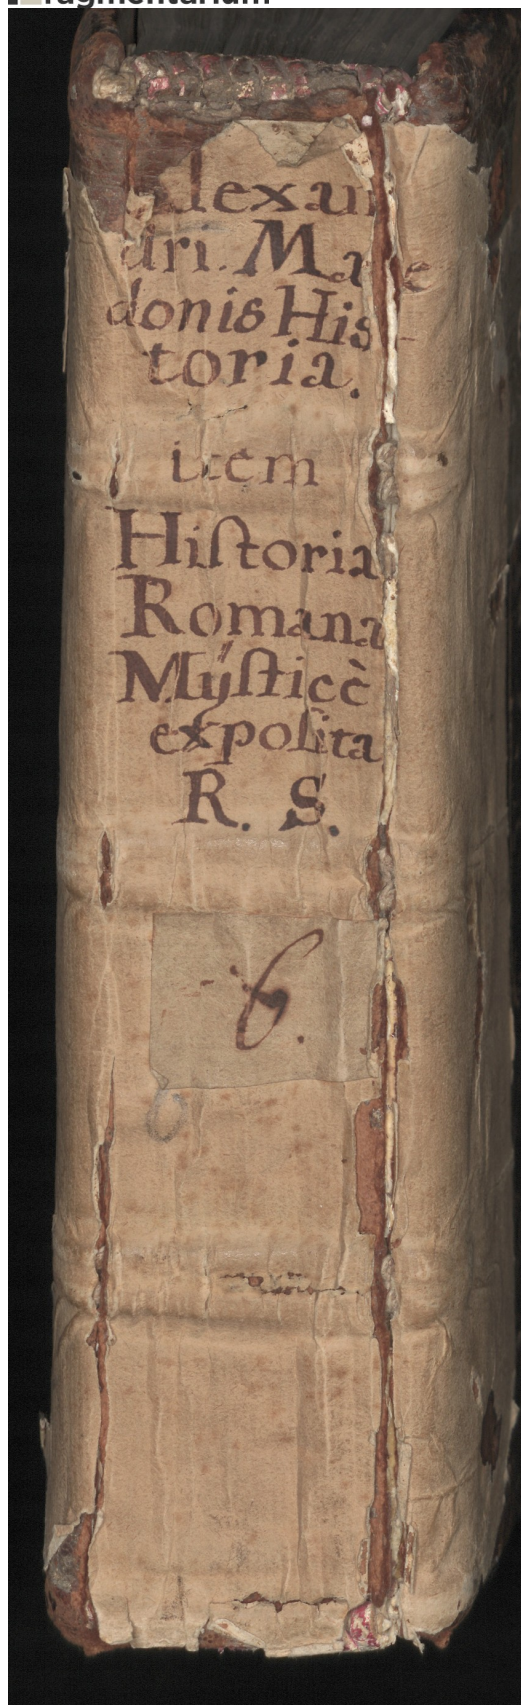 fragmentarium
Alexan
dri. Mace
donis His-
toria.
item
Hiſtoria
Romana
Mÿſticè
expoſita
R. S.
6.